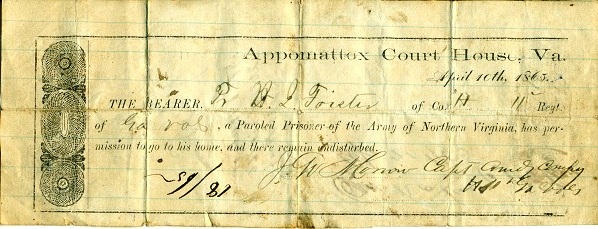 Appomattox Court House, Va.
April 10th, 1865.
THE BEARER, Pr of Co. H 11 Regt.
of Ga Vols, a Paroled Prisoner of the Army of Northern Virginia, has per-
mission to go to his home, and there remain undisturbed.
J. W. Morrow Capt Comdg Compy
H 11 Ga Vols